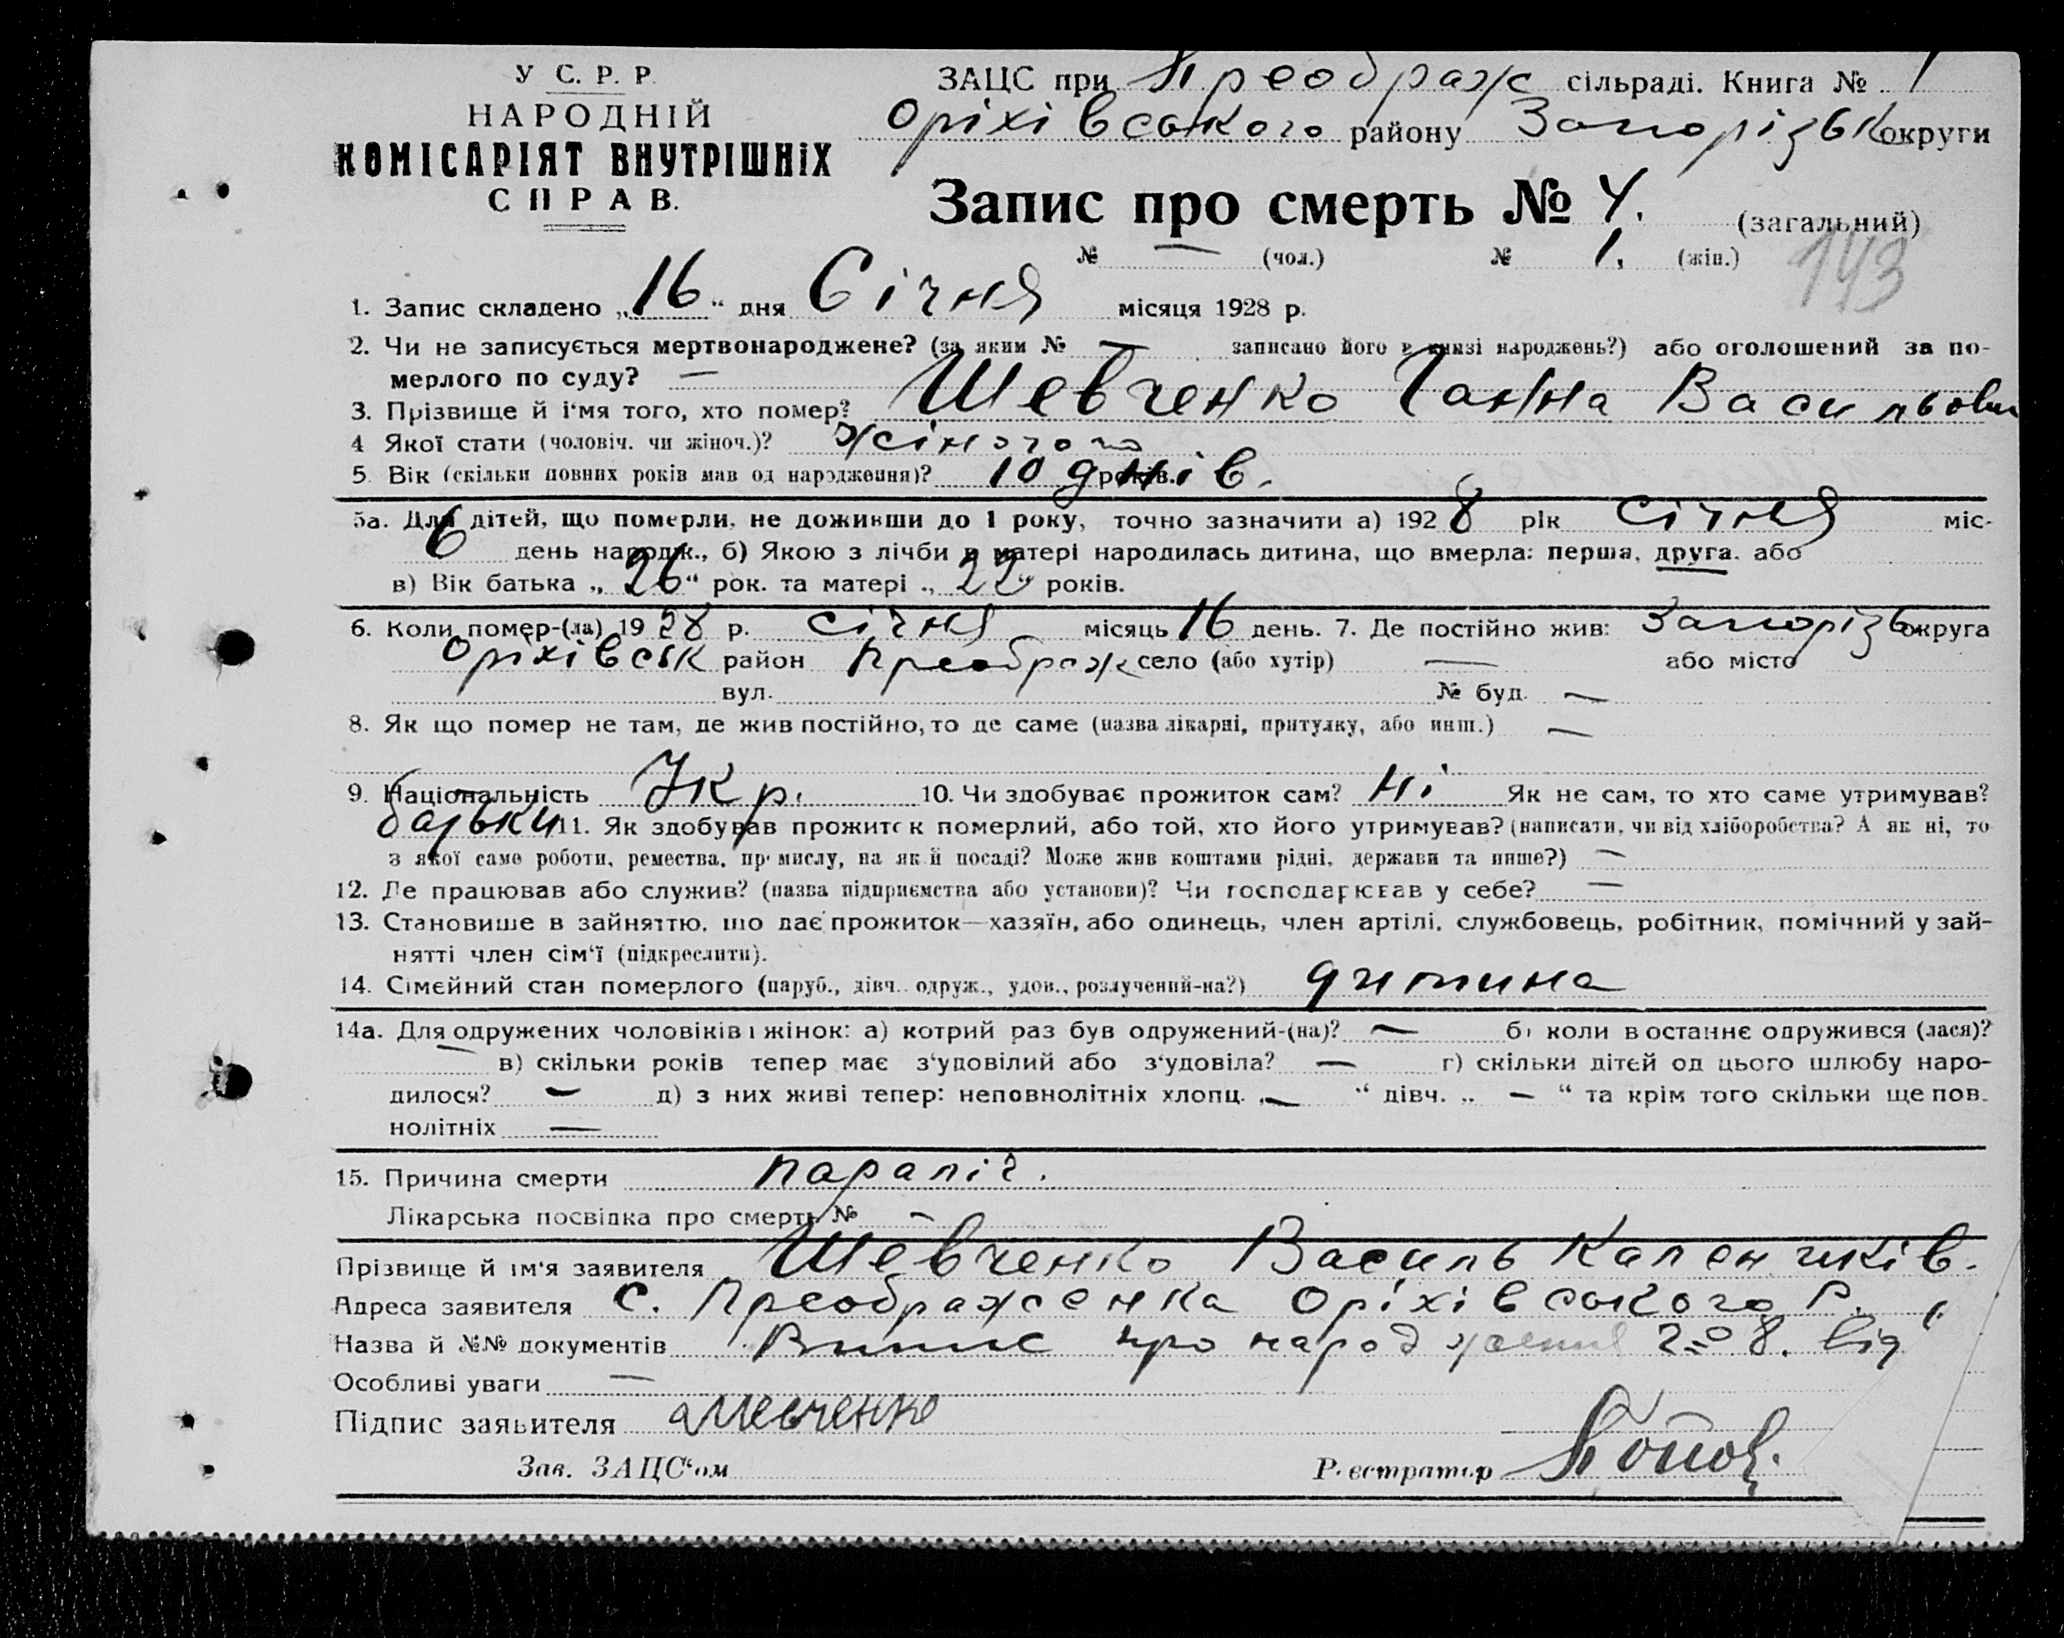 У С. Р. Р.
НАРОДНІЙ
КОМІСАРІЯТ ВНУТРІШНІХ
СПРАВ.
ЗАЦС при Преображ сільраді. Книга № 1
Оріхівського району Запорізьк округи
Запис про смерть № 4. (загальний)
№ — (чол.) № 1. (жін.)
143
1. Запис складено „16“ дня Січня місяця 1928 р.
2. Чи не записується мертвонароджене? (за яким № — записано його в книзі народжень?) або оголошений за по-
мерлого по суду? —
3. Прізвище й і'мя того, хто помер? Шевченко Ганна Васильовн
4 Якої стати (чоловіч. чи жіноч.)? жіночого
5. Вік (скільки повних років мав од народження)? 10 днів. років.
5а. Для дітей, що померли, не доживши до 1 року, точно зазначити а) 1928 рік січня міс-
6 день народж., б) Якою з лічби в матері народилась дитина, що вмерла: перша, друга. або
в) Вік батька „26“ рок. та матері „22“ років.
6. Коли помер-(ла) 1928 р. січня місяць 16 день. 7. Де постійно жив: Запорізьк округа
Оріхівськ район Преображ село (або хутір) — або місто
вул. № буд. —
8. Як що помер не там, де жив постійно, то де саме (назва лікарні, притулку, або инш.) —
9. Національність Укр. 10. Чи здобуває прожиток сам? Ні Як не сам, то хто саме утримував?
батьки 11. Як здобував прожиток померлий, або той, хто його утримував? (написати, чи від хліборобства? А як ні, то
з якої саме роботи, ремества, промислу, на якій посаді? Може жив коштами рідні, держави та инше?) —
12. Де працював або служив? (назва підприємства або установи)? Чи господарював у себе? —
13. Становище в зайняттю, що дає прожиток—хазяїн, або одинець, член артілі, службовець, робітник, помічний у зай-
нятті член сім'ї (підкреслити).
14. Сімейний стан померлого (паруб., дівч. одруж., удов., розлучений-на?) дитина
14а. Для одружених чоловіків і жінок: а) котрий раз був одружений-(на)? — б) коли востаннє одружився (лася)?
— в) скільки років тепер має з'удовілий або з'удовіла? — г) скільки дітей од цього шлюбу наро-
дилося? — д) з них живі тепер: неповнолітніх хлопц. „— “ дівч. „ — “ та крім того скільки ще пов-
нолітніх —
15. Причина смерти параліч.
Лікарська посвідка про смерть № —
Прізвище й ім'я заявителя Шевченко Василь Каленчиків.
Адреса заявителя с. Преображенка Оріхівського Р.
Назва й №№ документів Випис про народження 2=8. від
Особливі уваги —
Підпис заявителя Шевченко
Зав. ЗАЦС'ом Реєстратор Попов.